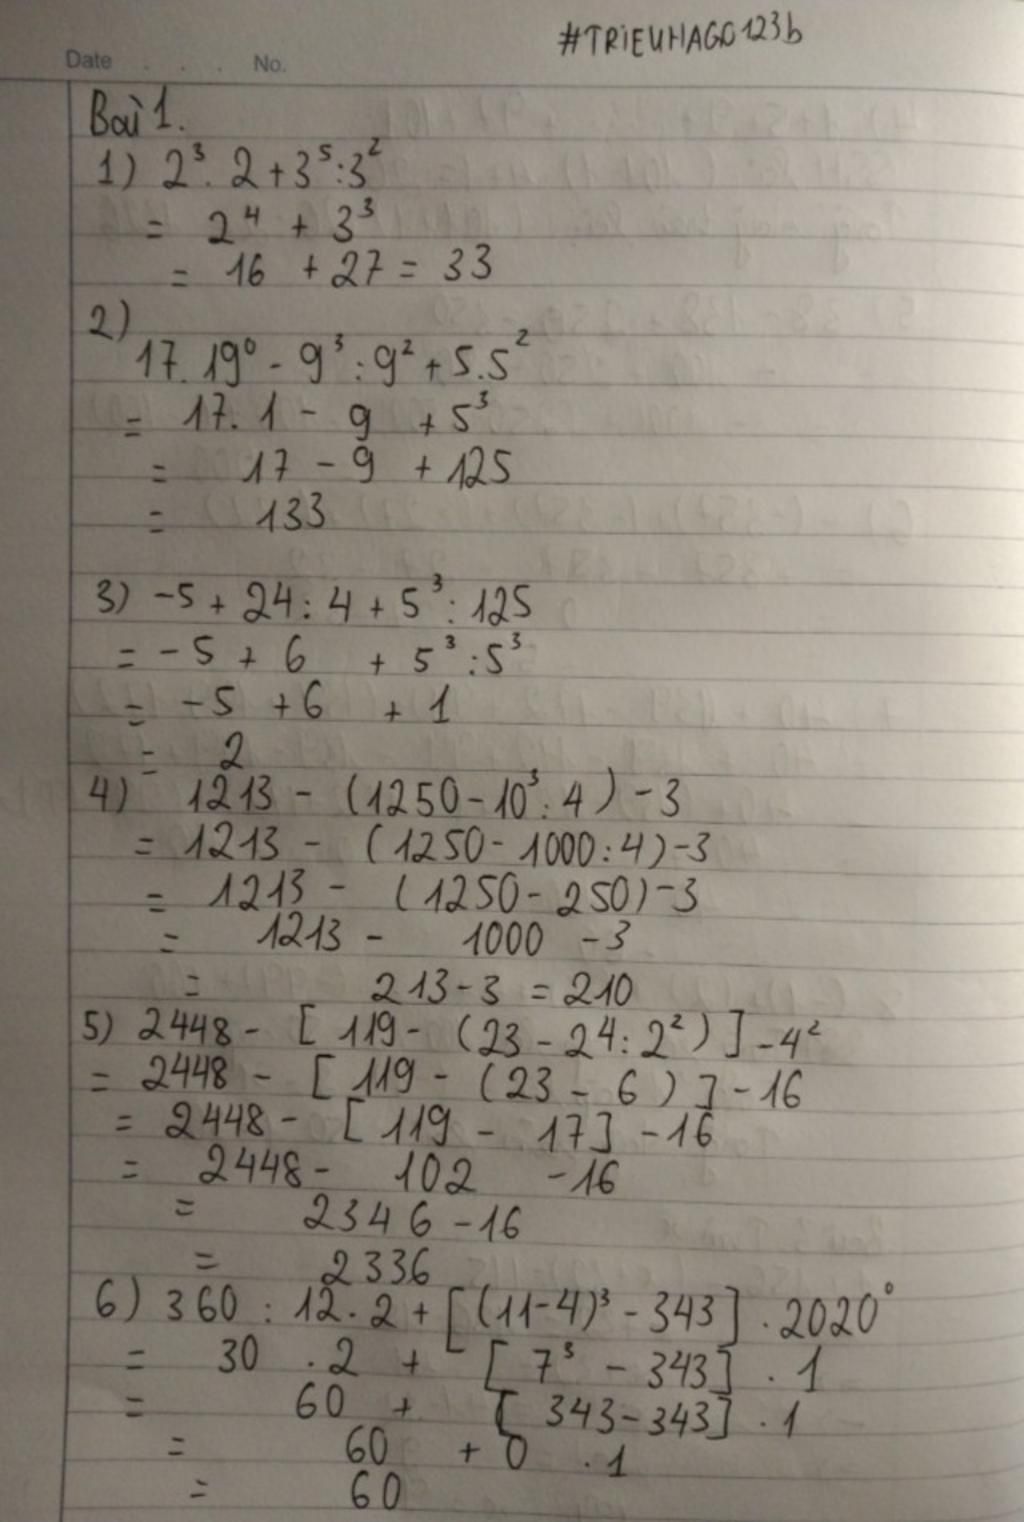 #TRIEUHAGO123b
Date . . . No.
Bài 1.
1) 2³. 2 + 3⁵ : 3²
= 2⁴ + 3³
= 16 + 27 = 33
2)
17. 19⁰ - 9³ : 9² + 5.5²
= 17. 1 - 9 + 5³
= 17 - 9 + 125
= 133
3) -5 + 24 : 4 + 5³ : 125
= -5 + 6 + 5³ : 5³
= -5 + 6 + 1
= 2
4) 1213 - (1250 - 10³ : 4) - 3
= 1213 - (1250 - 1000 : 4) - 3
= 1213 - (1250 - 250) - 3
= 1213 - 1000 - 3
= 213 - 3 = 210
5) 2448 - [ 119 - (23 - 24 : 2²) ] - 4²
= 2448 - [ 119 - (23 - 6 ) ] - 16
= 2448 - [ 119 - 17 ] - 16
= 2448 - 102 - 16
= 2346 - 16
= 2336
6) 360 : 12 . 2 + [(11-4)³ - 343] . 2020⁰
= 30 . 2 + [ 7³ - 343] . 1
= 60 + [ 343 - 343] . 1
= 60 + 0 . 1
= 60